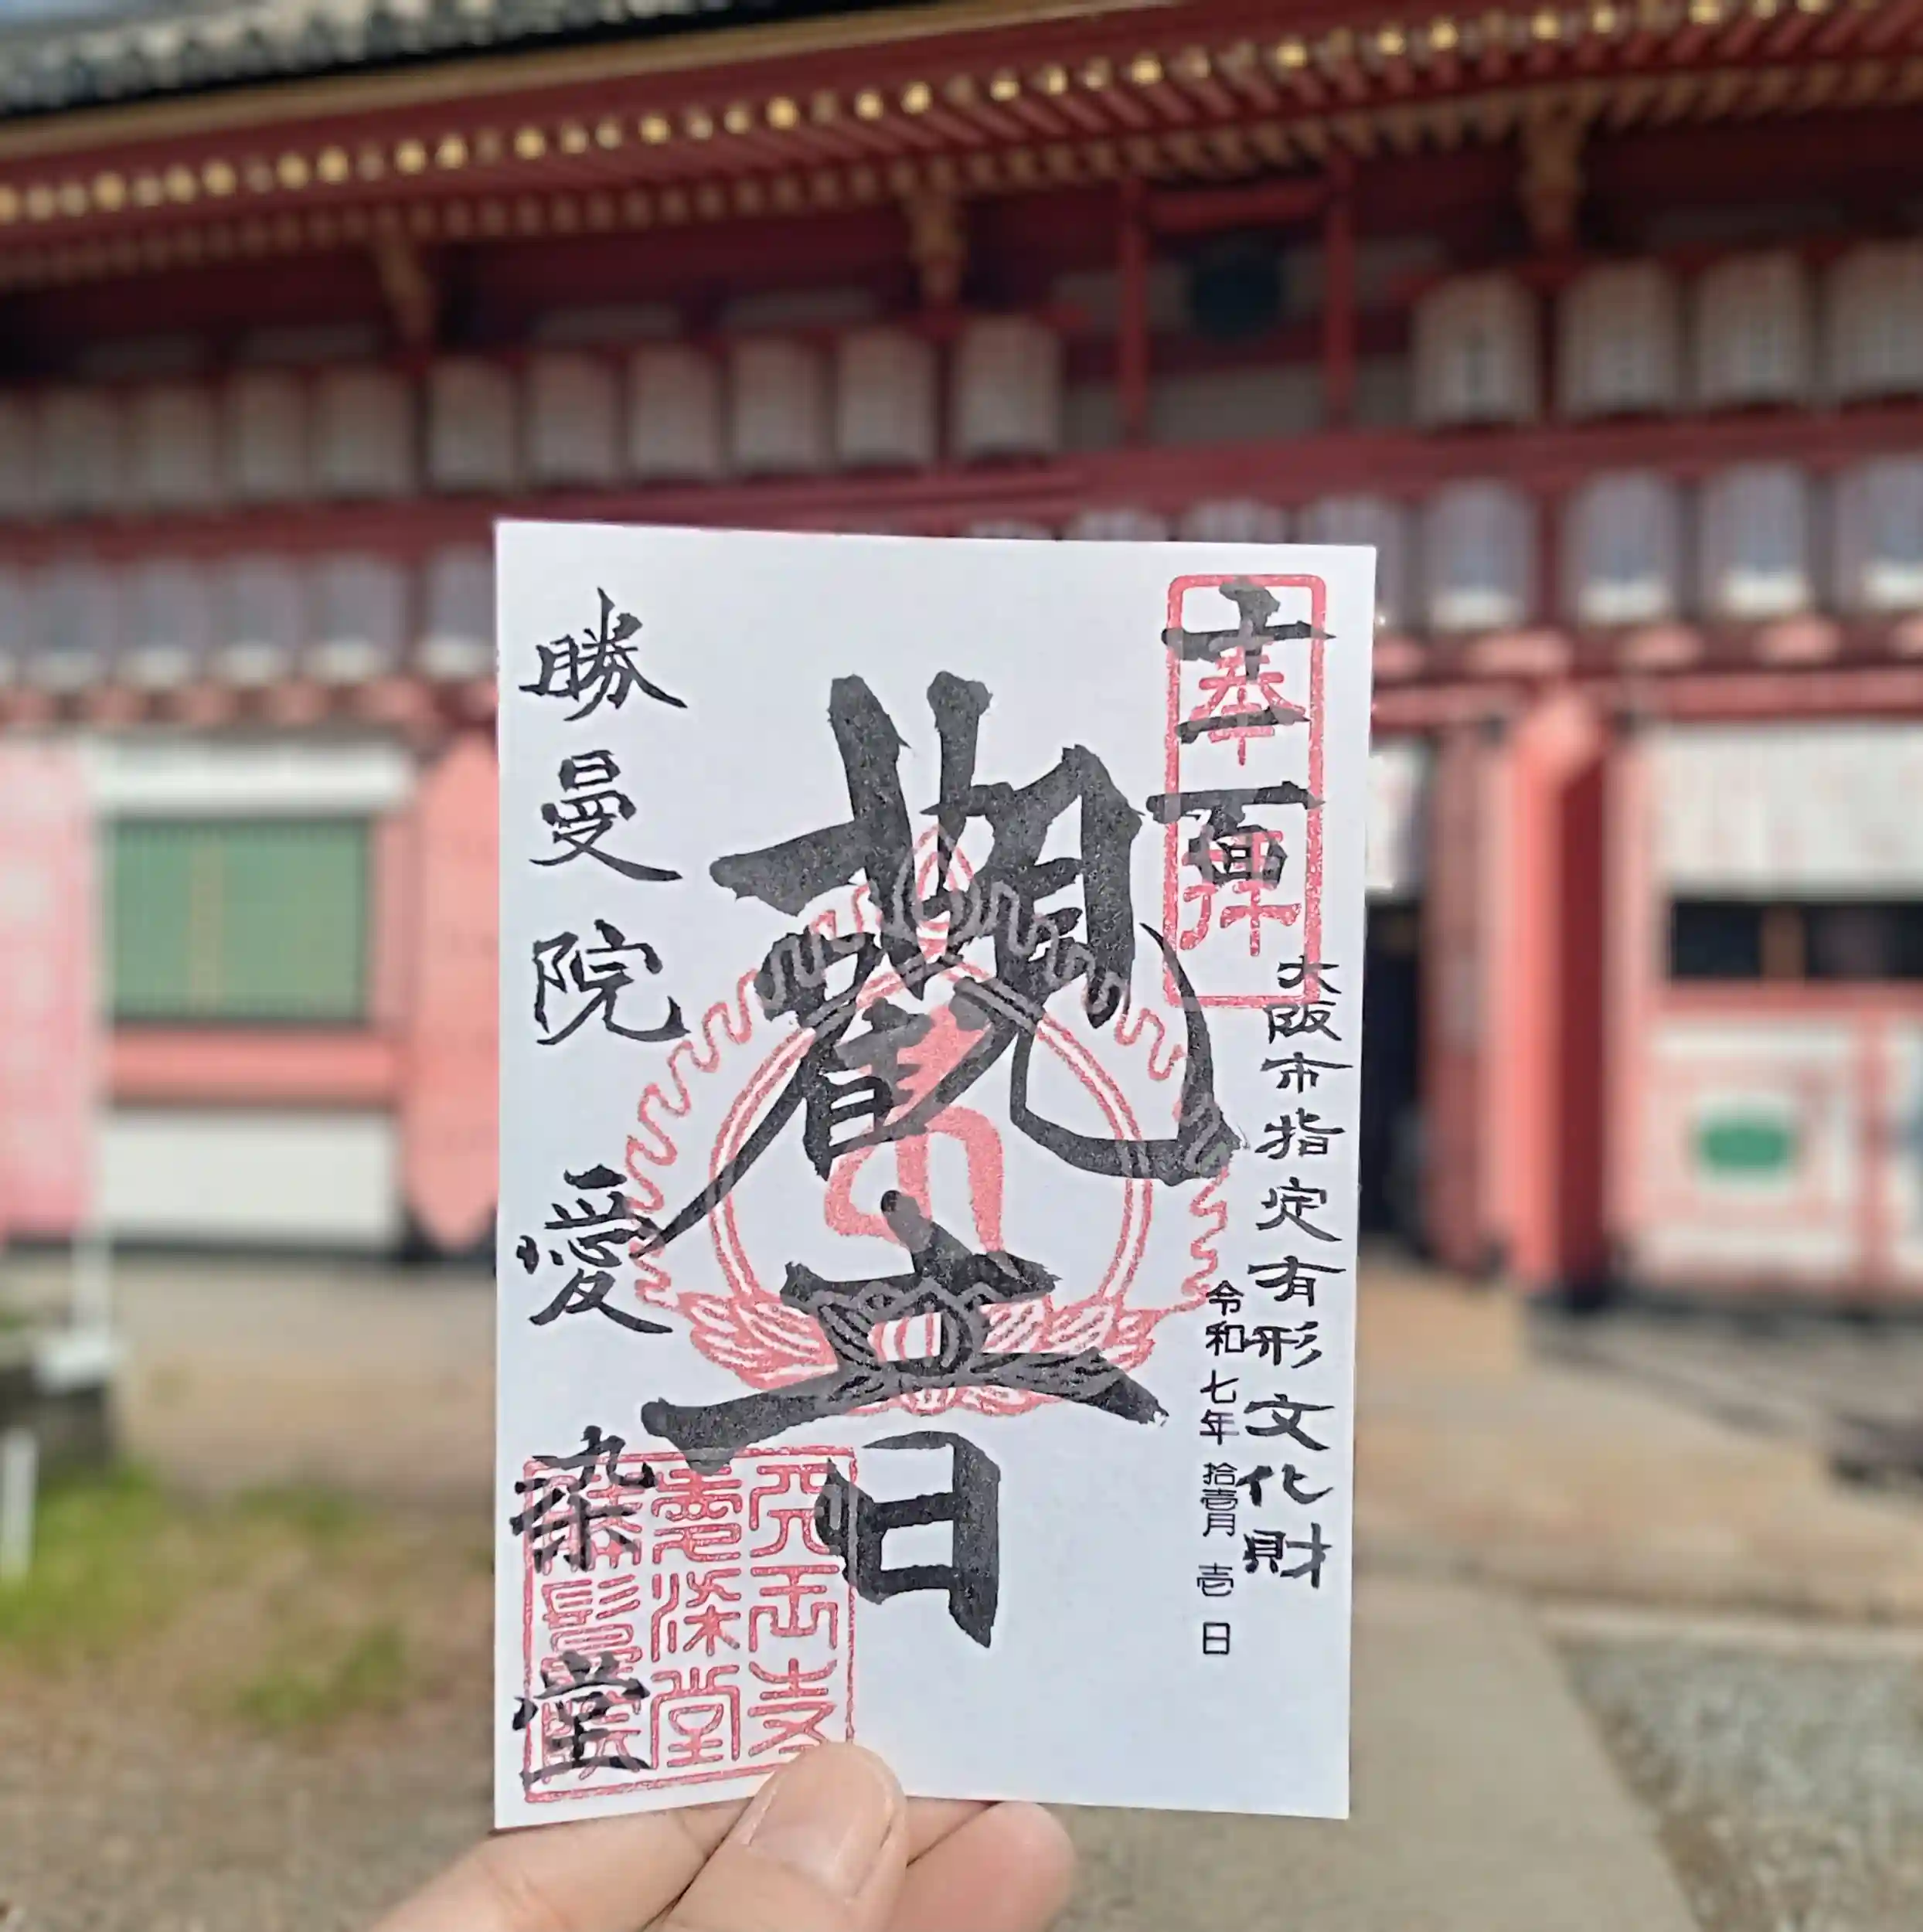 奉拝
十一面
大阪市指定有形文化財
令和七年拾壱月壱日
觀音
勝曼院 愛染堂
愛染堂
勝鬘院